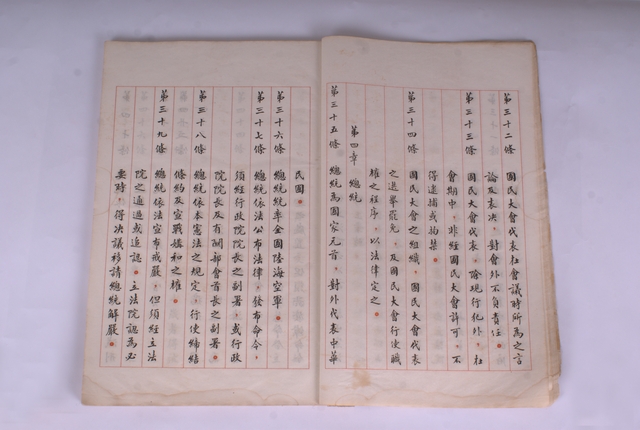 第三十二條　國民大會代表在會議時所為之言
論及表決，對會外不負責任。
第三十三條　國民大會代表，除現行犯外，在
會期中，非經國民大會許可，不
得逮捕或拘禁。
第三十四條　國民大會之組織，國民大會代表
之選舉罷免，及國民大會行使職
權之程序，以法律定之。
第四章　總統
第三十五條　總統為國家元首，對外代表中華
民國。
第三十六條　總統統率全國陸海空軍。
第三十七條　總統依法公布法律，發布命令，
須經行政院院長之副署，或行政
院院長及有關部會首長之副署。
第三十八條　總統依本憲法之規定，行使締結
條約及宣戰媾和之權。
第三十九條　總統依法宣布戒嚴，但須經立法
院之通過或追認。立法院認為必
要時，得決議移請總統解嚴。